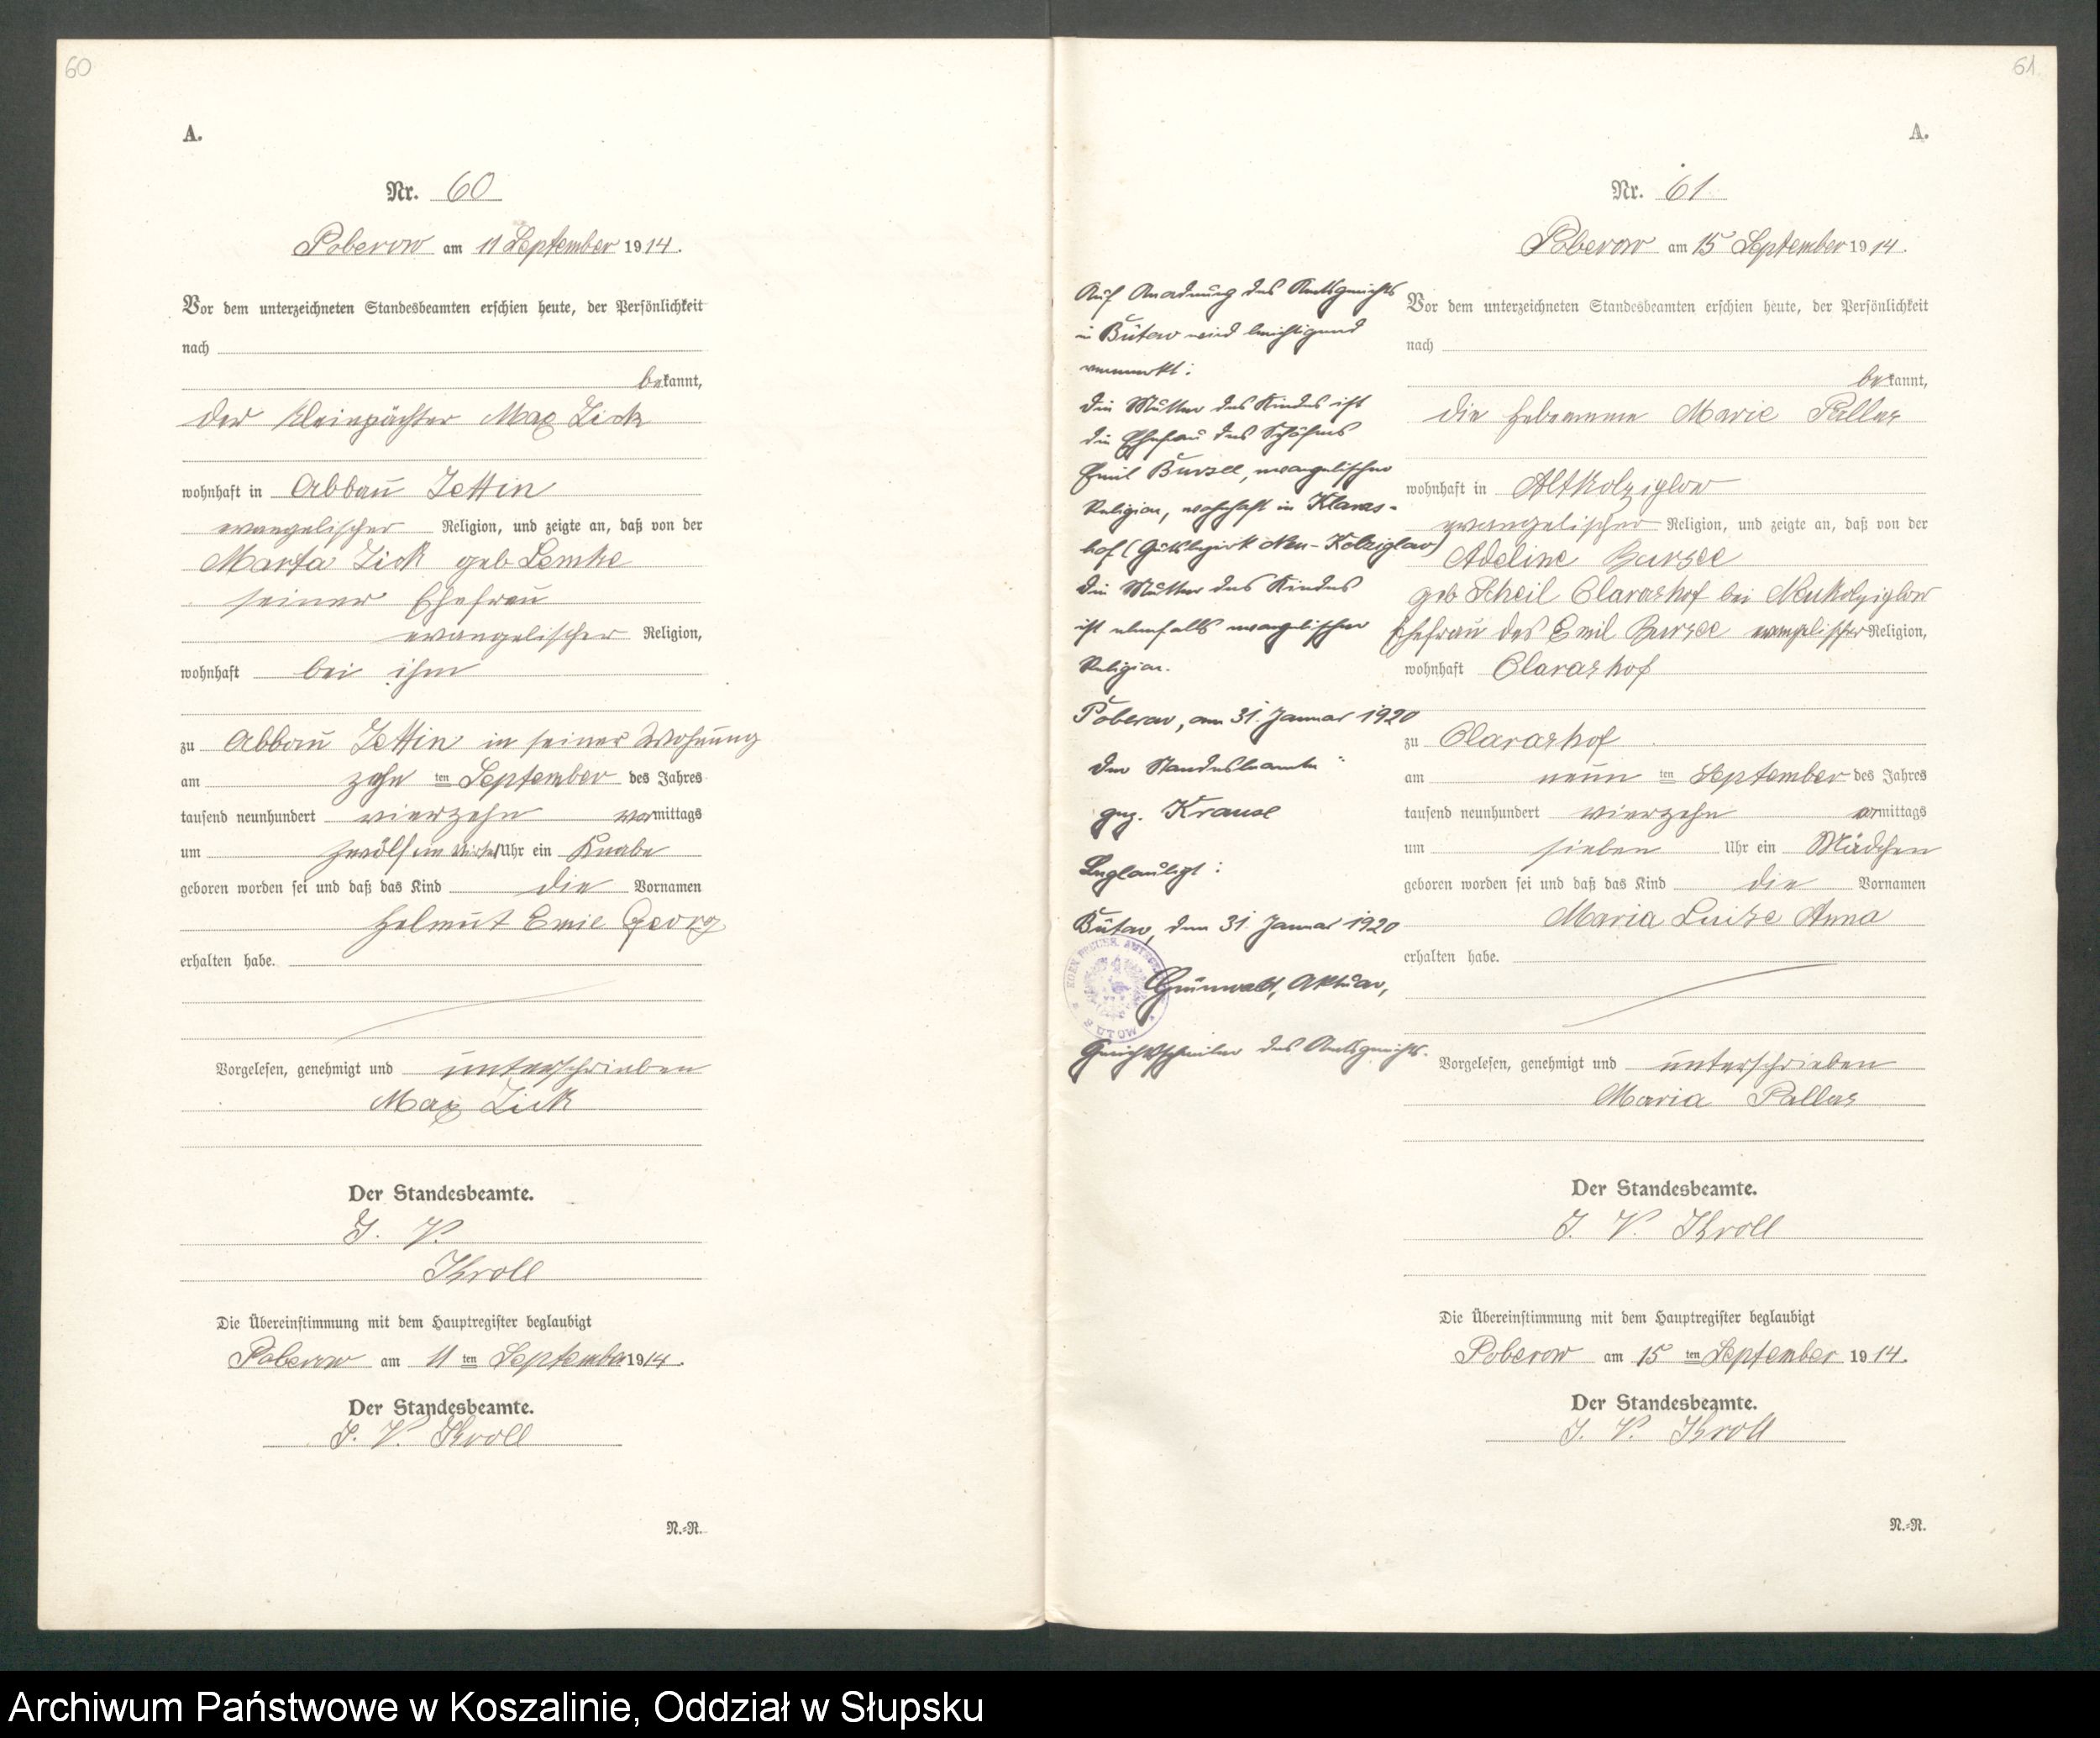 60
A.
Nr. 60
Poberow am 11 September 1914.
Vor dem unterzeichneten Standesbeamten erschien heute, der Persönlichkeit
nach
bekannt,
der Kleinpächter Max Zick
wohnhaft in Abbau Zettin
evangelischer Religion, und zeigte an, daß von der
Marta Zick geb Lemke
seiner Ehefrau
evangelischer Religion,
wohnhaft bei ihm
zu Abbau Zettin in seiner Wohnung
am zehn ten September des Jahres
tausend neunhundert vierzehn vormittags
um zwölf ein viertel Uhr ein Knabe
geboren worden sei und daß das Kind die Vornamen
Helmut Emil Georg
erhalten habe.
Vorgelesen, genehmigt und unterschrieben
Max Zick
Der Standesbeamte.
J. V.
Kroll
Die Übereinstimmung mit dem Hauptregister beglaubigt
Poberow am 11 ten September 1914.
Der Standesbeamte.
J. V. Kroll
N.-R.
61.
A.
Nr. 61.
Poberow am 15 September 1914.
Vor dem unterzeichneten Standesbeamten erschien heute, der Persönlichkeit
nach
bekannt,
die Hebeamme Marie Pallas
wohnhaft in Altkolziglow
evangelischer Religion, und zeigte an, daß von der
Adeline Bursee
geb Scheil Clarashof bei Neukolziglow
Ehefrau des Emil Bursee evangelischer Religion,
wohnhaft Clarashof
zu Clarashof
am neun ten September des Jahres
tausend neunhundert vierzehn vormittags
um sieben Uhr ein Mädchen
geboren worden sei und daß das Kind die Vornamen
Maria Luise Anna
erhalten habe.
Vorgelesen, genehmigt und unterschrieben
Maria Pallas
Der Standesbeamte.
J. V. Kroll
Die Übereinstimmung mit dem Hauptregister beglaubigt
Poberow am 15 ten September 1914.
Der Standesbeamte.
J. V. Kroll
N.-R.
Auf Anordnung des Amtsgerichts
in Bütow wird berichtigend
vermerkt:
Die Mutter des Kindes ist
die Ehefrau des Schäfers
Emil Bursee, evangelischer
Religion, wohnhaft in Klaras-
hof (Gutsbezirk Neu-Kolziglow)
Die Mutter des Kindes
ist ebenfalls evangelischer
Religion.
Poberow, am 31. Januar 1920
Der Standesbeamte:
gez. Krause
Beglaubigt:
Bütow, den 31. Januar 1920
BÜTOW
Grünwald, Aktuar,
Gerichtsschreiber des Amtsgerichts.
Archiwum Państwowe w Koszalinie, Oddział w Słupsku